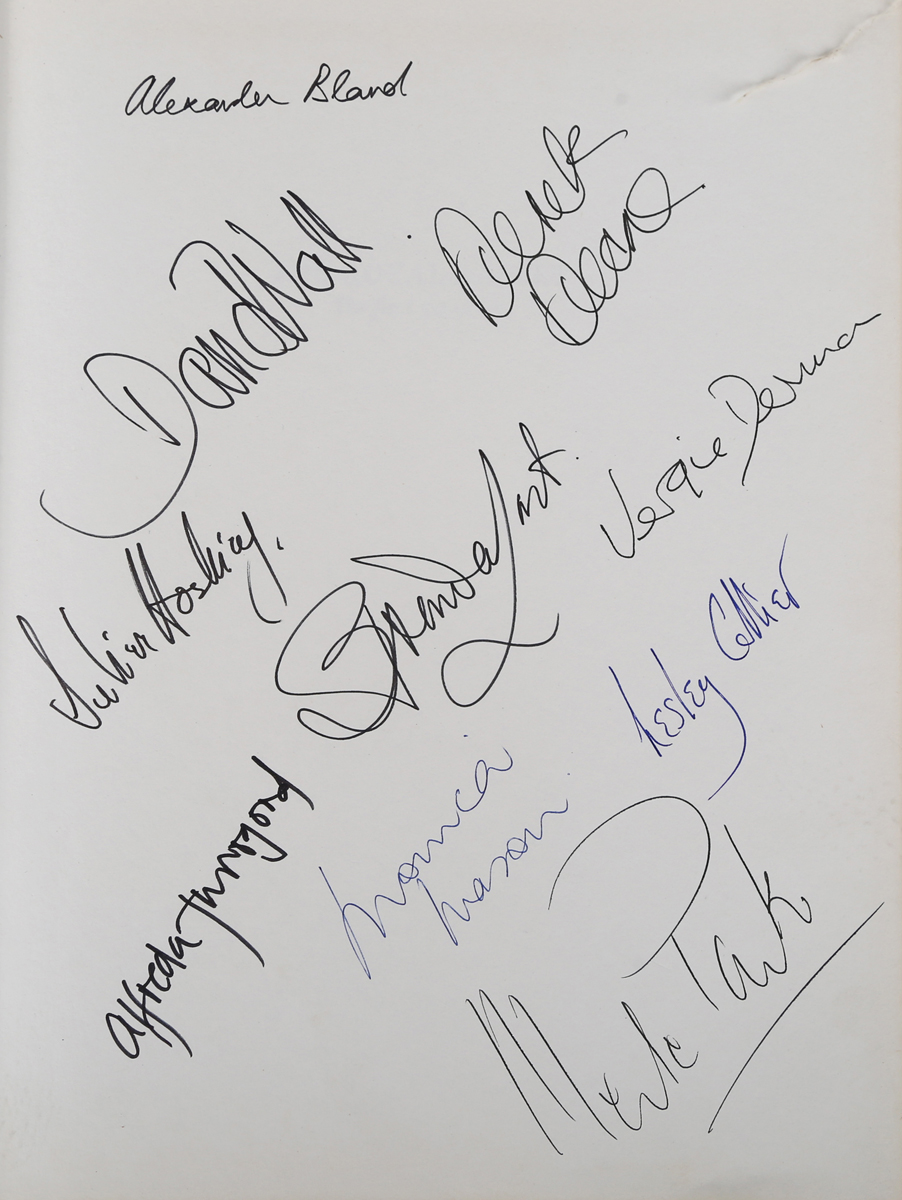 Alexander Bland
Derek
Deane
David Wall
Vergie Derman
Brenda Last.
Julian Hosking.
Lesley Collier
Monica
Mason
Alfreda Thorogood
Merle Park